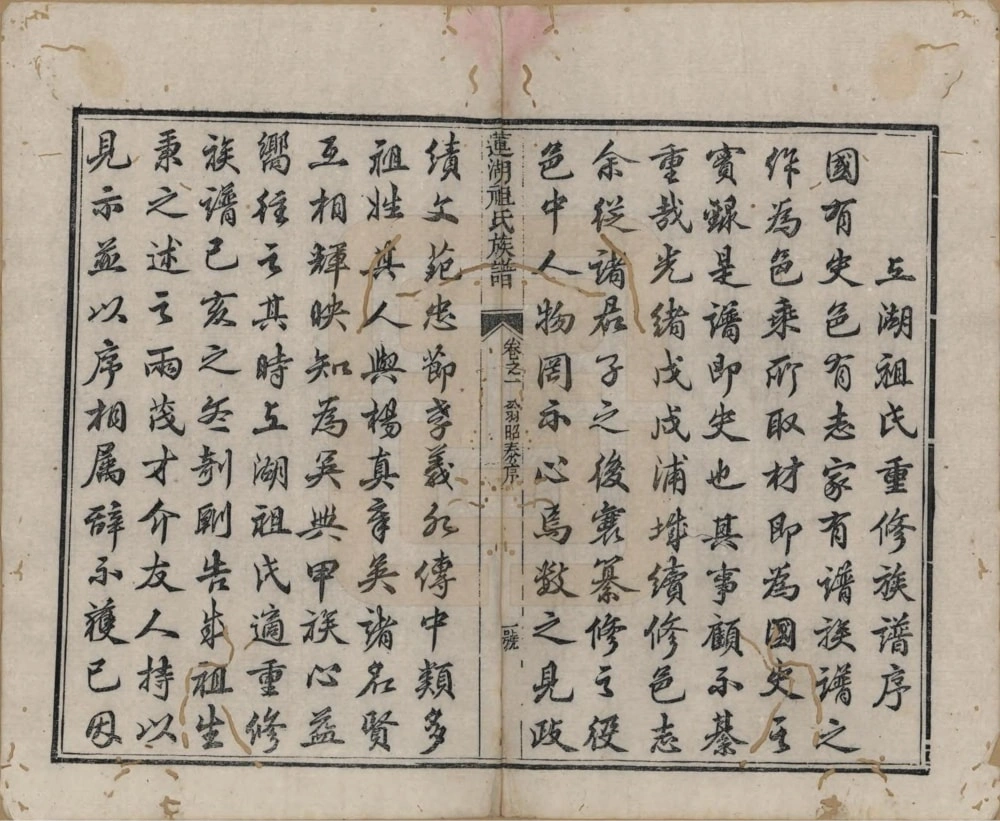 上湖祖氏重修族譜序
國有史邑有志家有譜族譜之
作為邑乘所取材即為國史之
實錄是譜即史也其事顧不綦
重哉光緒戊戌浦城續修邑志
余從諸君子之後襄纂修之役
邑中人物罔不心焉數之見政
蓮湖祖氏族譜
卷之一
翁昭泰序
一號
績文苑忠節孝義列傳中類多
祖姓其人與楊真章吳諸名賢
互相輝映知為吳興甲族心益
嚮往之其時上湖祖氏適重修
族譜己亥之冬剞劂告成祖生
秉之述之雨茂才介友人持以
見示並以序相屬辭不獲已因